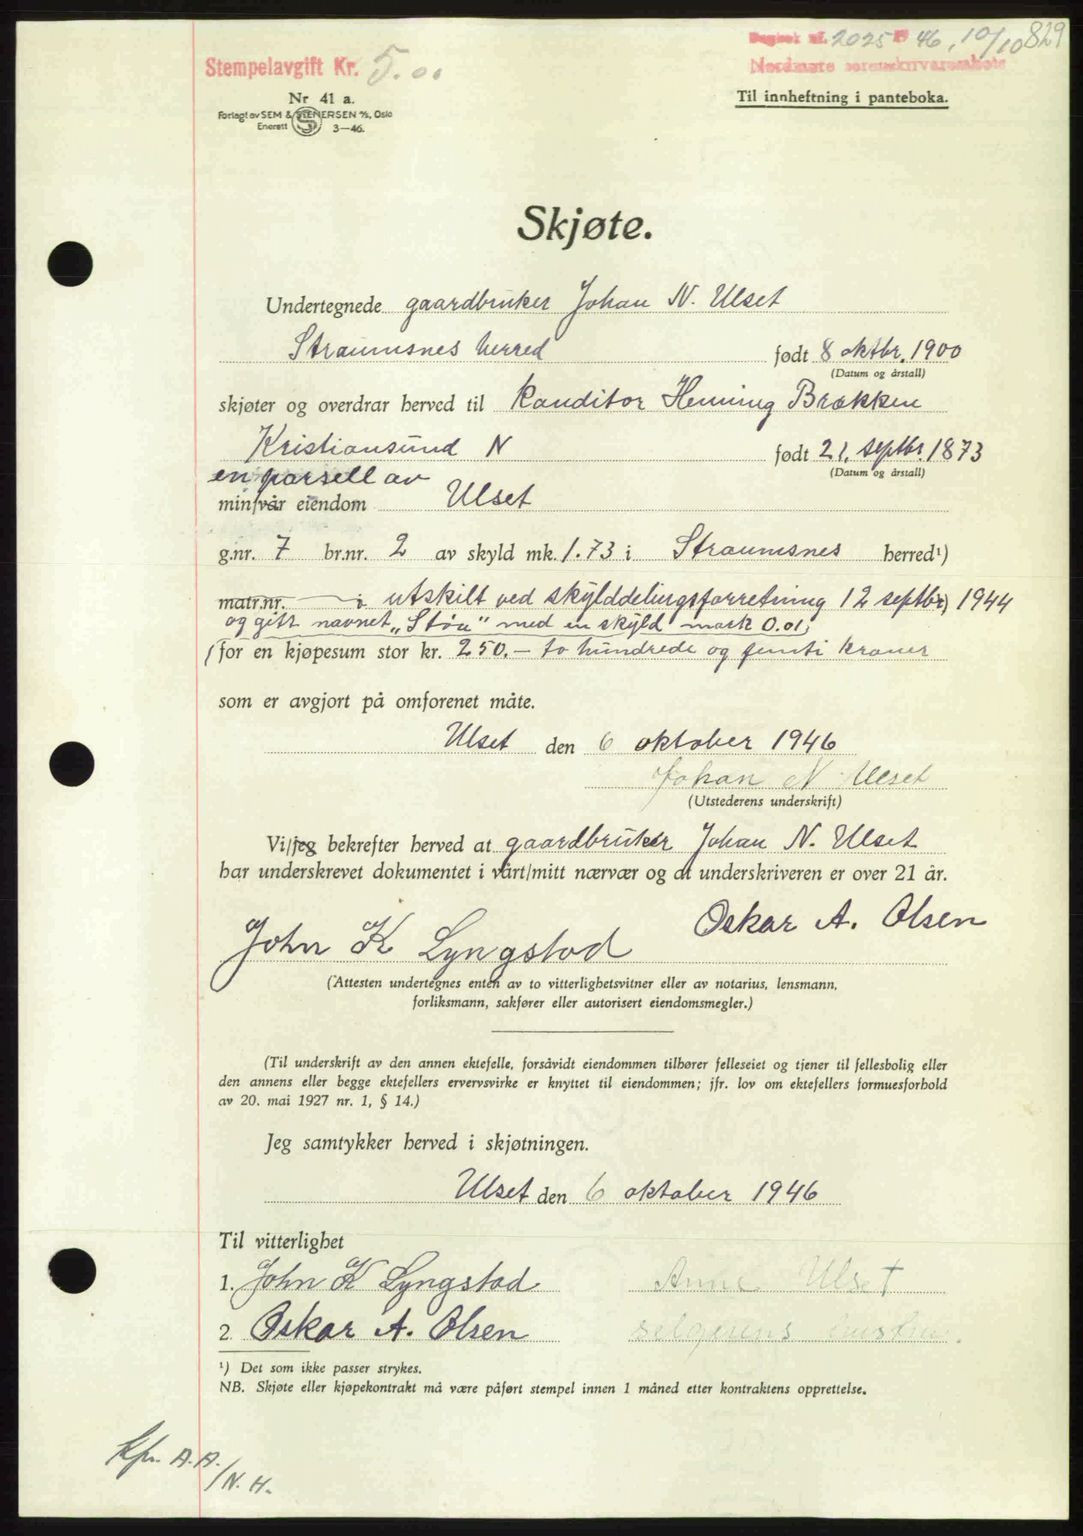 Dagbok nr. 2025 19 46, 10/10 829
Nordmøre sorenskriverembete
Stempelavgift Kr. 5.00
Nr 41 a.
Forlagt av SEM & STENERSEN A/S, Oslo
Enerett 3-46.
Til innheftning i panteboka.
Skjøte.
Undertegnede gaardbruker Johan N. Ulset
Straumsnes herred født 8 oktbr. 1900
(Datum og årstall)
skjøter og overdrar herved til Konditor Henning Brækken
Kristiansund N født 21. septbr. 1873
(Datum og årstall)
en parsell av
min/vår eiendom Ulset
g.nr. 7 br.nr. 2 av skyld mk. 1.73 i Straumsnes herred¹)
matr.nr. i utskilt ved skylddelingsforretning 12 septbr, 1944
og gitt navnet "Støa" med en skyld mark 0.01,
for en kjøpesum stor kr. 250.- to hundrede og femti kroner
som er avgjort på omforenet måte.
Ulset den 6 oktober 1946
Johan N Ulset
(Utstederens underskrift)
Vi/jeg bekrefter herved at gaardbruker Johan N. Ulset
har underskrevet dokumentet i vårt/mitt nærvær og at underskriveren er over 21 år.
Oskar A. Olsen
John K Lyngstad
(Attesten undertegnes enten av to vitterlighetsvitner eller av notarius, lensmann,
forliksmann, sakfører eller autorisert eiendomsmegler.)
(Til underskrift av den annen ektefelle, forsåvidt eiendommen tilhører felleseiet og tjener til fellesbolig eller
den annens eller begge ektefellers ervervsvirke er knyttet til eiendommen; jfr. lov om ektefellers formuesforhold
av 20. mai 1927 nr. 1, § 14.)
Jeg samtykker herved i skjøtningen.
Ulset den 6 oktober 1946
Til vitterlighet
1. John K Lyngstad Anne Ulset
2. Oskar A. Olsen selgerens hustru.
¹) Det som ikke passer strykes.
NB. Skjøte eller kjøpekontrakt må være påført stempel innen 1 måned etter kontraktens opprettelse.
Kfr. A.A.
/N.H.